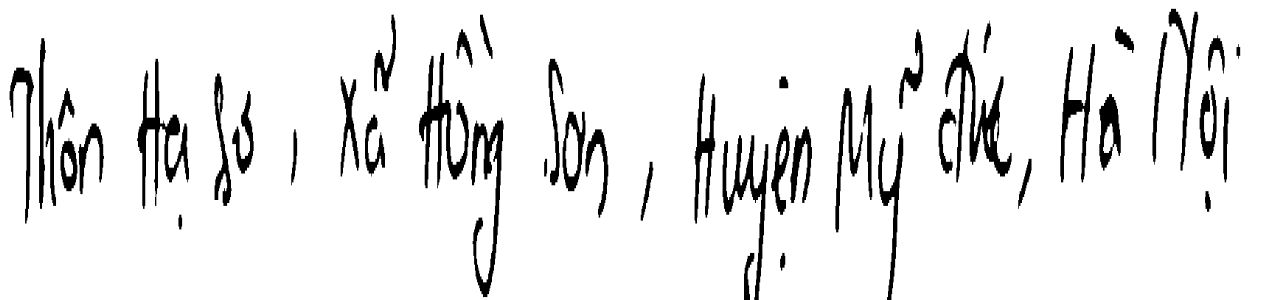 Thôn Hạ Sở, Xã Hồng Sơn, Huyện Mỹ Đức, Hà Nội